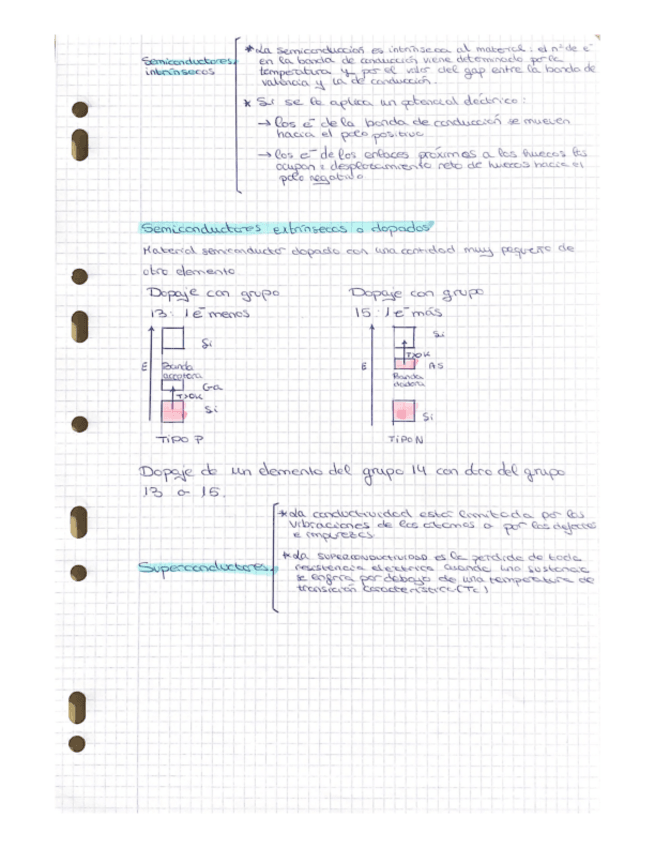 Semiconductores intrínsecos
* La semiconducción es intrínseca al material: el nº de e⁻
en la banda de conducción viene determinado por la
temperatura y por el valor del gap entre la banda de
valencia y la de conducción.
* Si se le aplica un potencial eléctrico:
→ los e⁻ de la banda de conducción se mueven
hacia el polo positivo
→ los e⁻ de los enlaces próximos a los huecos los
ocupan: desplazamiento neto de huecos hacia el
polo negativo
Semiconductores extrínsecos o dopados
Material semiconductor dopado con una cantidad muy pequeña de
otro elemento
Dopaje con grupo
13: 1e⁻ menos
Si
E
Banda
aceptora
Ga
T>0K
Si
TIPO P
Dopaje con grupo
15: 1e⁻ más
Si
T>0K
E
AS
Banda
dadora
Si
TIPO N
Dopaje de un elemento del grupo 14 con otro del grupo
13 o 15.
Superconductores
* La conductividad está limitada por las
vibraciones de los átomos o por los defectos
e impurezas
* La SUPERCONDUCTIVIDAD es la pérdida de toda
resistencia eléctrica cuando una sustancia
se enfría por debajo de una temperatura de
transición característica (Tc)